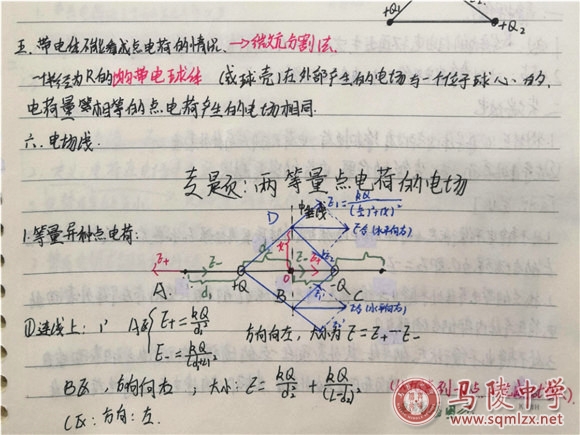 +Q₁ +Q₂
五、带电体不能看成点电荷的情况. →微元分割法.
一个半径为R的均匀带电球体 (或球壳)在外部产生的电场与一个位于球心、
电荷量等相等的点电荷产生的电场相同.
六、电场线.
专题:两等量点电荷的电场
1.等量异种点电荷:
D 中垂线 E₁=
E合(水平向右)
E₊ E₋ d₁ +Q O E₋ E₊ -Q
A. B C
E合(水平向右)
①连线上: 1' A点 { E₊=kQ/d₁²
E₋=
方向向左, 大小为 E=E₊-E₋
B点, 方向向右, 大小: E=kQ/d₂²+kQ/(L-d₂)²
C点: 方向: 左.
马陵中学
www.sqmlzx.net